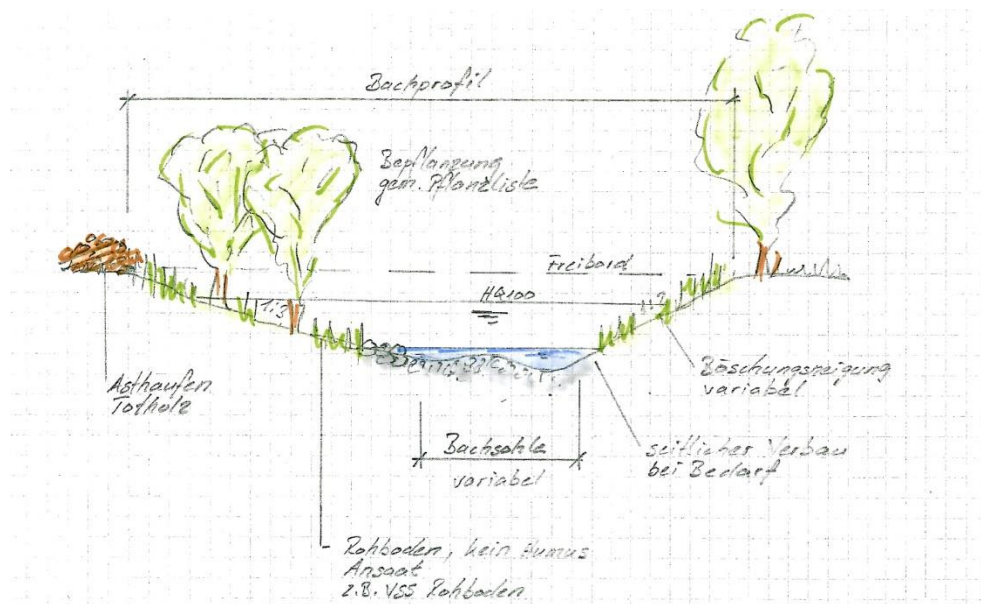 Bachprofil
Bepflanzung
gem. Pflanzliste
Freibord
HQ100
1:3
1:2
Böschungsneigung
variabel
Asthaufen
Totholz
Bachsohle
variabel
seitlicher Verbau
bei Bedarf
- Rohboden, kein Humus
Ansaat
z.B. VSS Rohboden